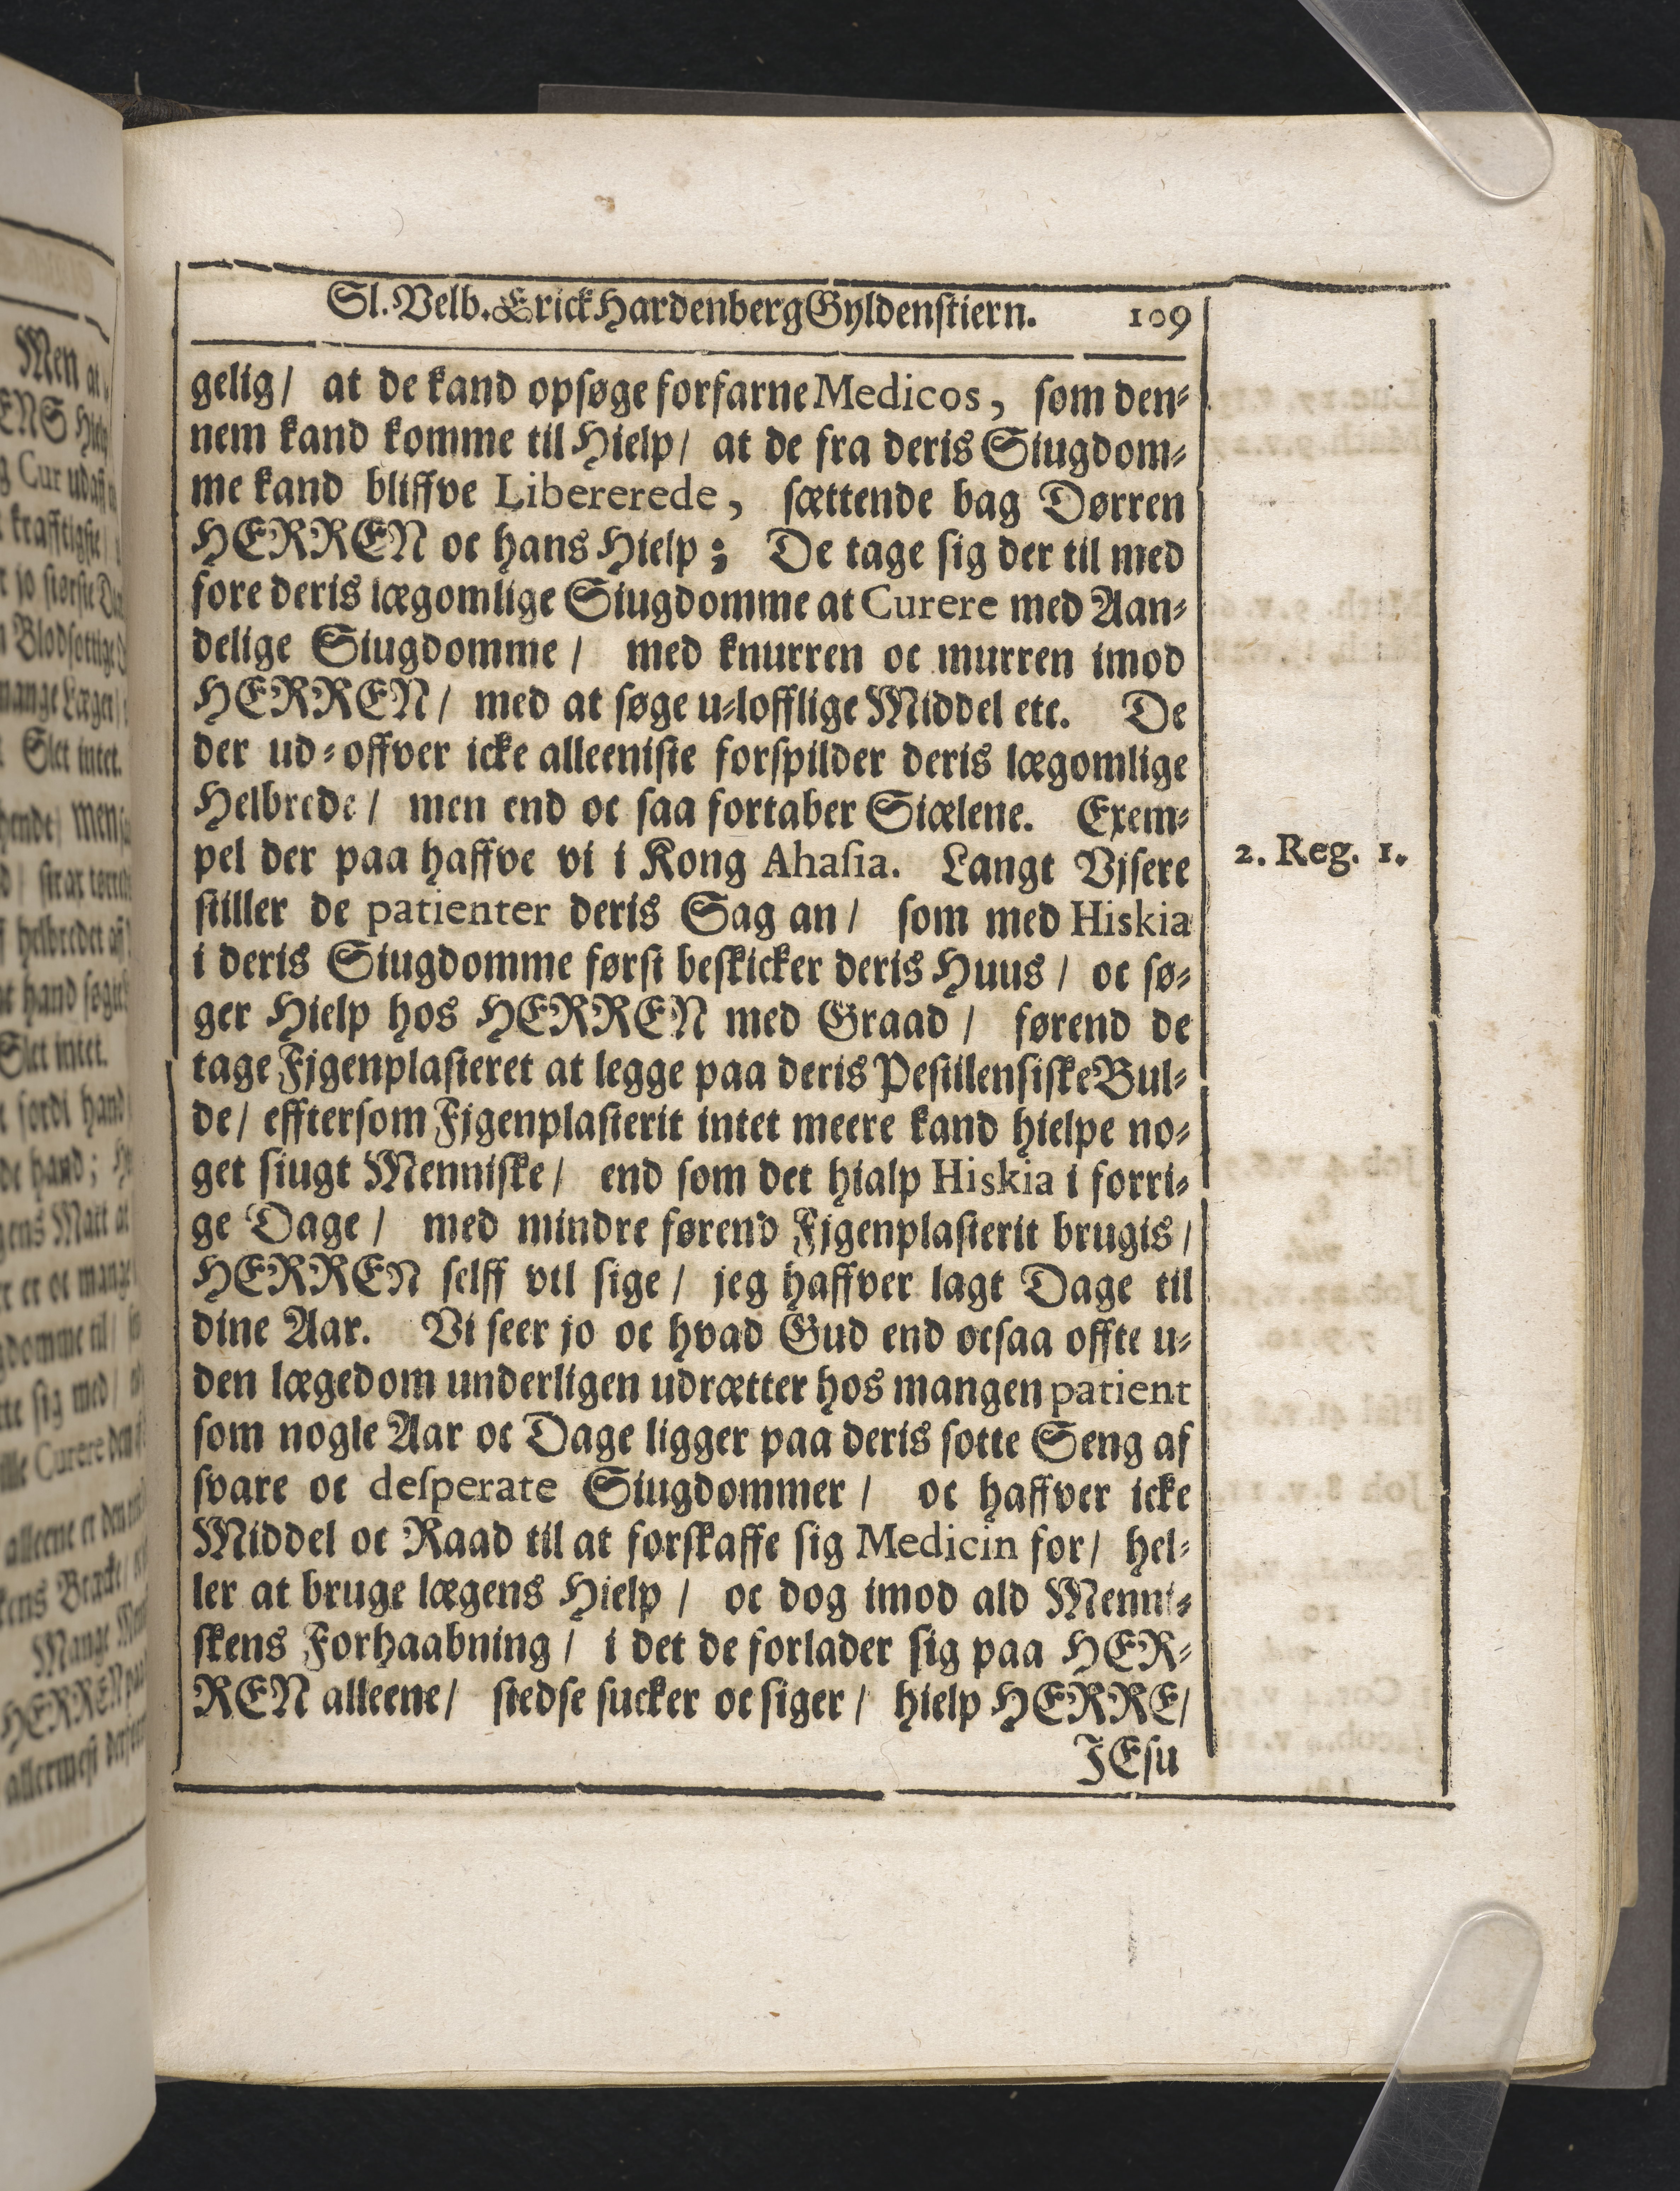 Sl. Velb. Erick Hardenberg Gyldenstiern. 109
gelig/ at de kand opsøge forfarne Medicos, som den-
nem kand komme til Hielp/ at de fra deris Siugdom-
me kand bliffve Libererede, sættende bag Dørren
HERREN oc hans Hielp; De tage sig der til med
fore deris lægomlige Siugdomme at Curere med Aan-
delige Siugdomme/ med knurren oc murren imod
HERREN/ med at søge u-lofflige Middel etc. De
der ud-offver icke alleeniste forspilder deris lægomlige
Helbrede/ men end oc saa fortaber Siælene. Exem-
pel der paa haffve vi i Kong Ahasia. Langt Vjsere
2. Reg. 1.
stiller de patienter deris Sag an/ som med Hiskia
i deris Siugdomme først beskicker deris Huus/ oc sø-
ger Hielp hos HERREN med Graad/ førend de
tage Fjgenplasteret at legge paa deris Pestilensiske Bul-
de/ efftersom Fjgenplasterit intet meere kand hielpe no-
get siugt Menniske/ end som det hialp Hiskia i forri-
ge Dage/ med mindre førend Fjgenplasterit brugis/
HERREN selff vil sige/ jeg haffver lagt Dage til
dine Aar. Vi seer jo oc hvad Gud end ocsaa offte u-
den lægedom underligen udrætter hos mangen patient
som nogle Aar oc Dage ligger paa deris sotte Seng af
svare oc desperate Siugdommer/ oc haffver icke
Middel oc Raad til at forskaffe sig Medicin for/ hel-
ler at bruge lægens Hielp/ oc dog imod ald Menni-
skens Forhaabning/ i det de forlader sig paa HER-
REN alleene/ stedse sucker oc siger/ hielp HERRE/
JEsu